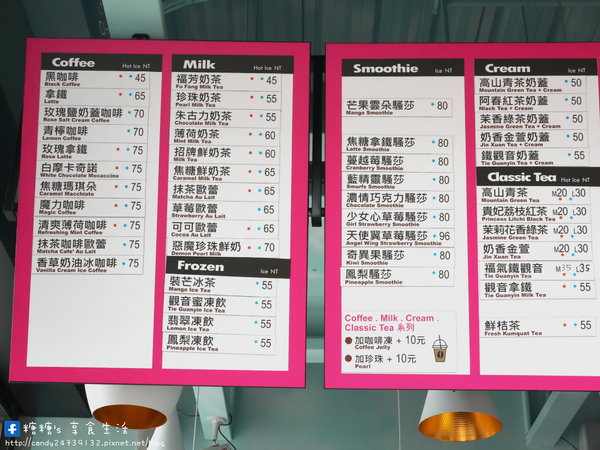 Coffee Hot Ice NT
黑咖啡 45
Black Coffee
拿鐵 65
Latte
玫瑰鹽奶蓋咖啡 70
Rose Salt Cream Coffee
青檸咖啡 70
Lemon Coffee
玫瑰拿鐵 75
Rose Latte
白摩卡奇諾 75
White Chocolate Moccaccino
焦糖瑪琪朵 75
Caramel Macchiato
魔力咖啡 75
Magic Coffee
清爽薄荷咖啡 75
Refreshing Mint Coffee
抹茶咖啡歐蕾 75
Matcha Cafe' Au Lait
香草奶油冰咖啡 75
Vanilla Cream Ice Coffee
Milk Hot Ice NT
福芳奶茶 45
Fu Fang Milk Tea
珍珠奶茶 55
Pearl Milk Tea
朱古力奶茶 50
Chocolate Milk Tea
薄荷奶茶 60
Mint Milk Tea
招牌鮮奶茶 60
Milk Tea
焦糖鮮奶茶 60
Caramel Milk Tea
抹茶歐蕾 60
Matcha Au Lait
草莓歐蕾 60
Strawberry Au Lait
可可歐蕾 60
Cocoa Au Lait
惡魔珍珠鮮奶 70
Demon Pearl Milk
Frozen Ice NT
裝芒冰茶 55
Mango Ice Tea
觀音蜜凍飲 55
Tie Guanyin Ice Tea
翡翠凍飲 55
Lemon Ice Tea
鳳梨凍飲 55
Pineapple Ice Tea
Smoothie Ice NT
芒果雲朵騷莎 80
Mango Smoothie
焦糖拿鐵騷莎 80
Latte Smoothie
蔓越莓騷莎 80
Cranberry Smoothie
藍精靈騷莎 80
Smurfs Smoothie
濃情巧克力騷莎 80
Chocolate Smoothie
少女心草莓騷莎 80
Girl Strawberry Smoothie
天使翼草莓騷莎 96
Angel Wing Strawberry Smoothie
奇異果騷莎 80
Kiwi Smoothie
鳳梨騷莎 80
Pineapple Smoothie
Coffee . Milk . Cream .
Classic Tea 系列
加咖啡凍 + 10元
Coffee Jelly
加珍珠 + 10元
Pearl
Cream Ice NT
高山青茶奶蓋 50
Mountain Green Tea + Cream
阿春紅茶奶蓋 50
Black Tea + Cream
茉香綠茶奶蓋 50
Jasmine Green Tea + Cream
奶香金萱奶蓋 50
Jin Xuan Tea + Cream
鐵觀音奶蓋 55
Tie Guanyin Tea + Cream
Classic Tea Hot Ice NT
高山青茶 M20 L30
Mountain Green Tea
貴妃荔枝紅茶 M20 L30
Princess Litchi Black Tea
茉莉花香綠茶 M20 L30
Jasmine Green Tea
奶香金萱 M20 L30
Jin Xuan Tea
福氣鐵觀音 M35 L35
Tie Guanyin Tea
觀音拿鐵 55
Tie Guanyin Milk Tea
鮮桔茶 55
Fresh Kumquat Tea
糖糖's 享食生活
http://candy24739132.pixnet.net/blog